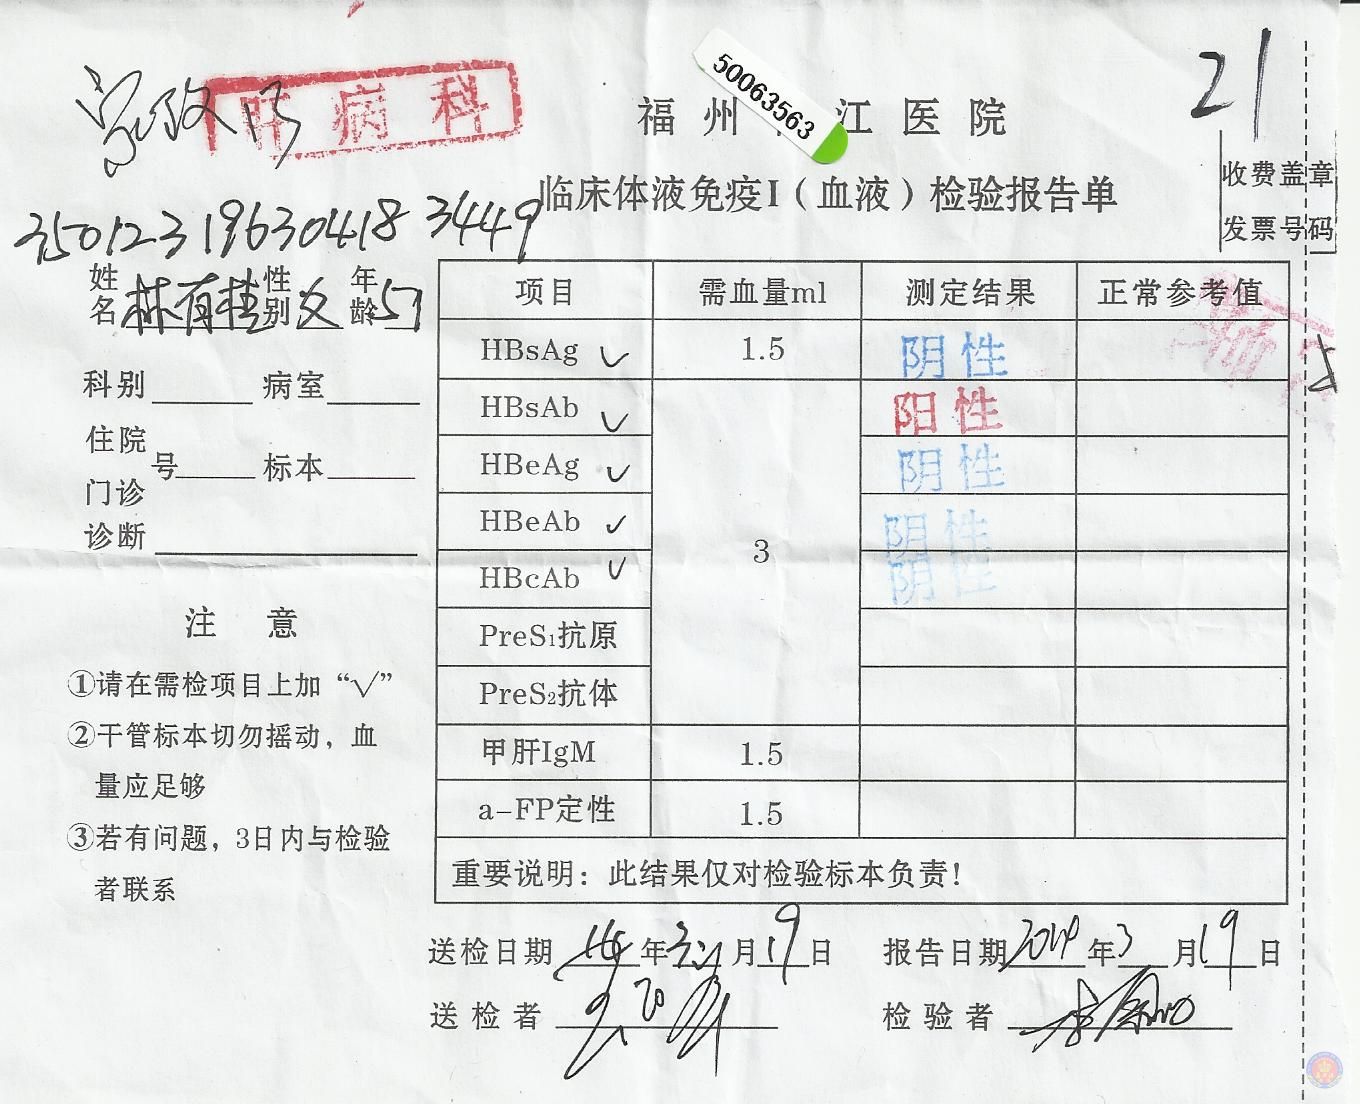 21
肝病科
50063563
福州 江医院
收费盖章
发票号码
临床体液免疫I（血液）检验报告单
350123196304183449
姓名 林有桂 性别 女 年龄 51
科别 病室
住院
门诊 号 标本
诊断
项目 需血量ml 测定结果 正常参考值
HBsAg ✓ 1.5 阴性
HBsAb ✓ 阳性
HBeAg ✓ 阴性
HBeAb ✓ 3 阴性
HBcAb ✓ 阴性
PreS₁抗原
PreS₂抗体
甲肝IgM 1.5
a-FP定性 1.5
重要说明：此结果仅对检验标本负责！
注意
①请在需检项目上加“√”
②干管标本切勿摇动，血
量应足够
③若有问题，3日内与检验
者联系
送检日期 年 月 19 日 报告日期 2014 年 3 月 19 日
送检者 检验者